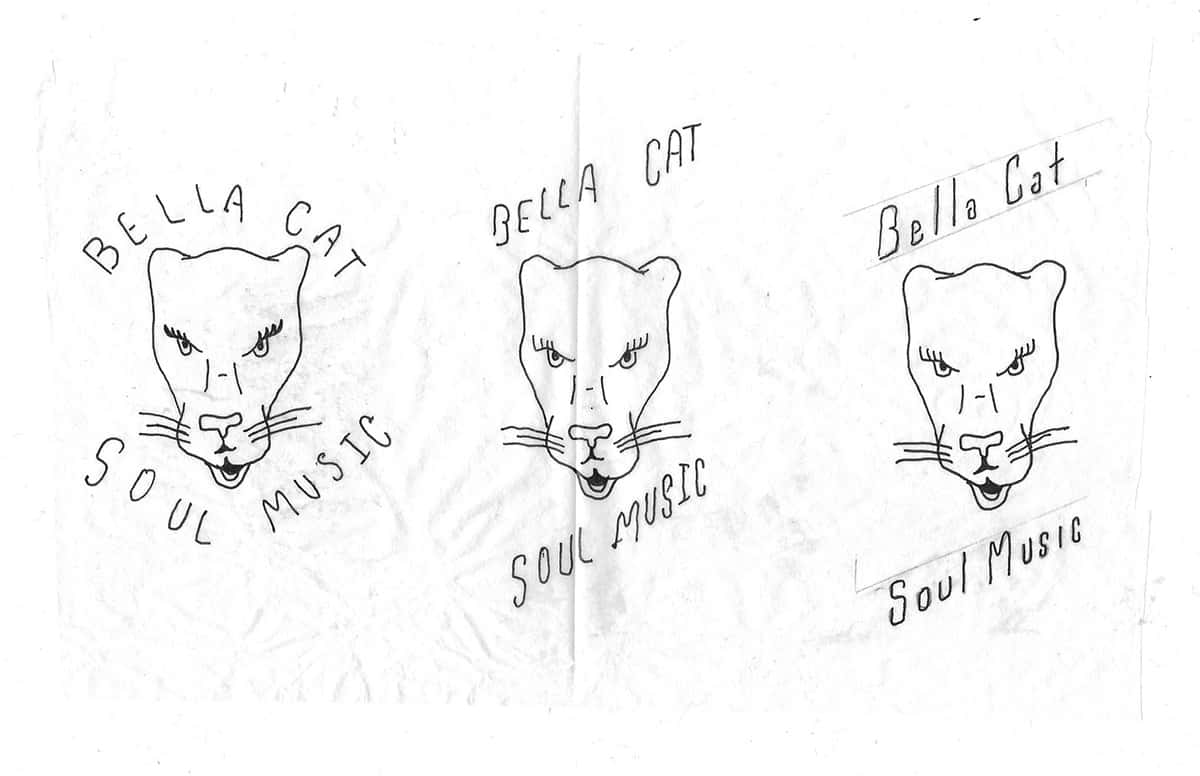 BELLA CAT
SOUL MUSIC
BELLA CAT
SOUL MUSIC
Bella Cat
Soul Music